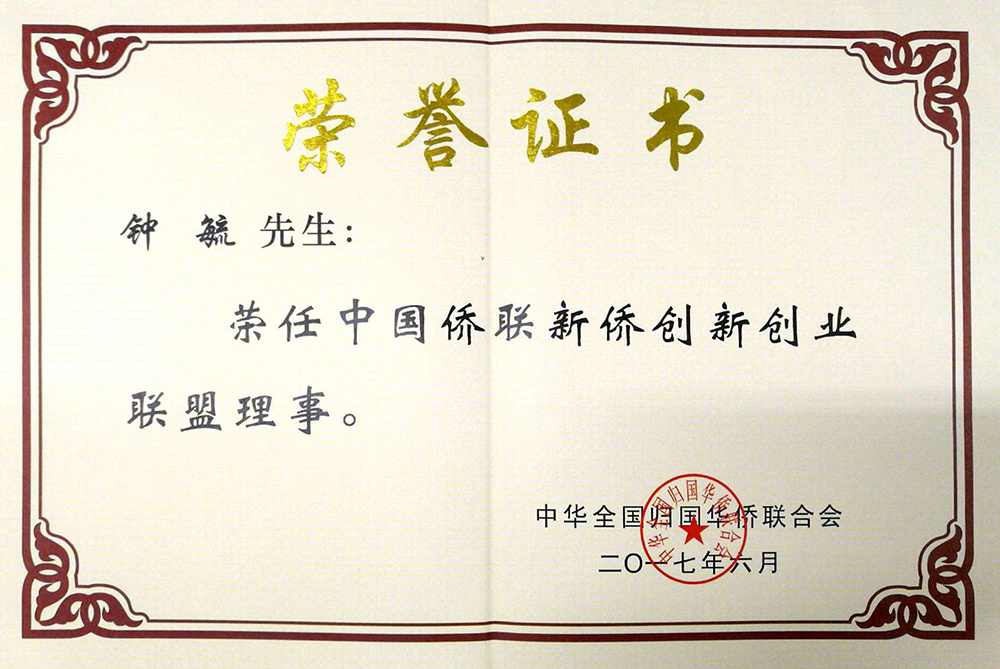 荣誉证书
钟 毓 先生：
荣任中国侨联新侨创新创业
联盟理事。
中华全国归国华侨联合会
二〇一七年六月
中华全国归国华侨联合会